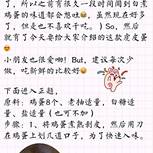 了，所以之前有很大一段时间闻到白煮
蛋的味道都会想吐。虽然现在好多
了，但是也不喜欢干吃。）So，然后
就有了今天要给大家介绍的这款虎皮蛋
小朋友也很爱哟！But，建议每次少
做，吃新鲜的比较好
下面进入主题，
原料：鸡蛋8个、老抽适量、白糖适
量、盐适量（也可不加）
步骤：1、将鸡蛋煮熟剥皮，然后用刀
在鸡蛋上划几道口子，为了快速入味。